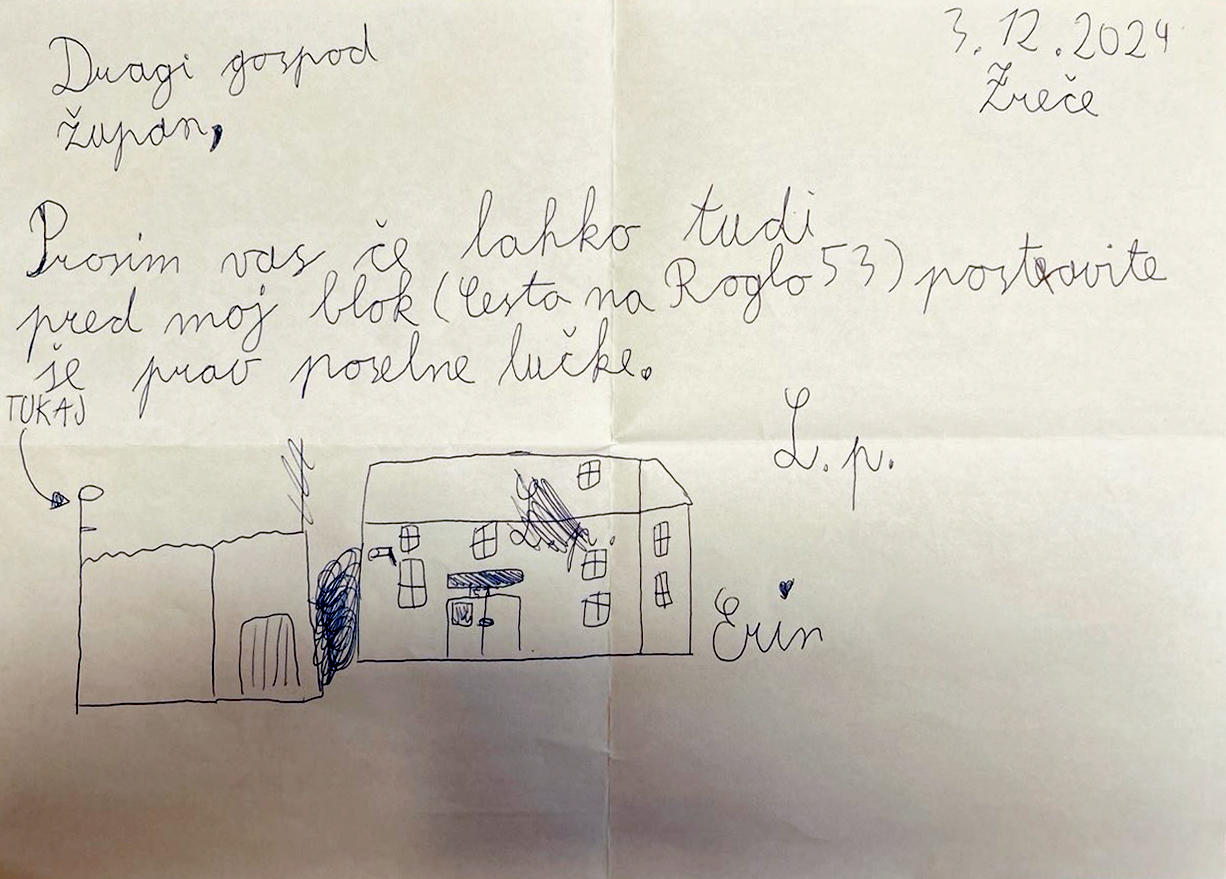 3.12.2024
Zreče
Dragi gospod
župan,
Prosim vas če lahko tudi
pred moj blok (Cesta na Roglo 53) postavite
še prav poselne lučke.
TUKAJ
L.p.
Erin